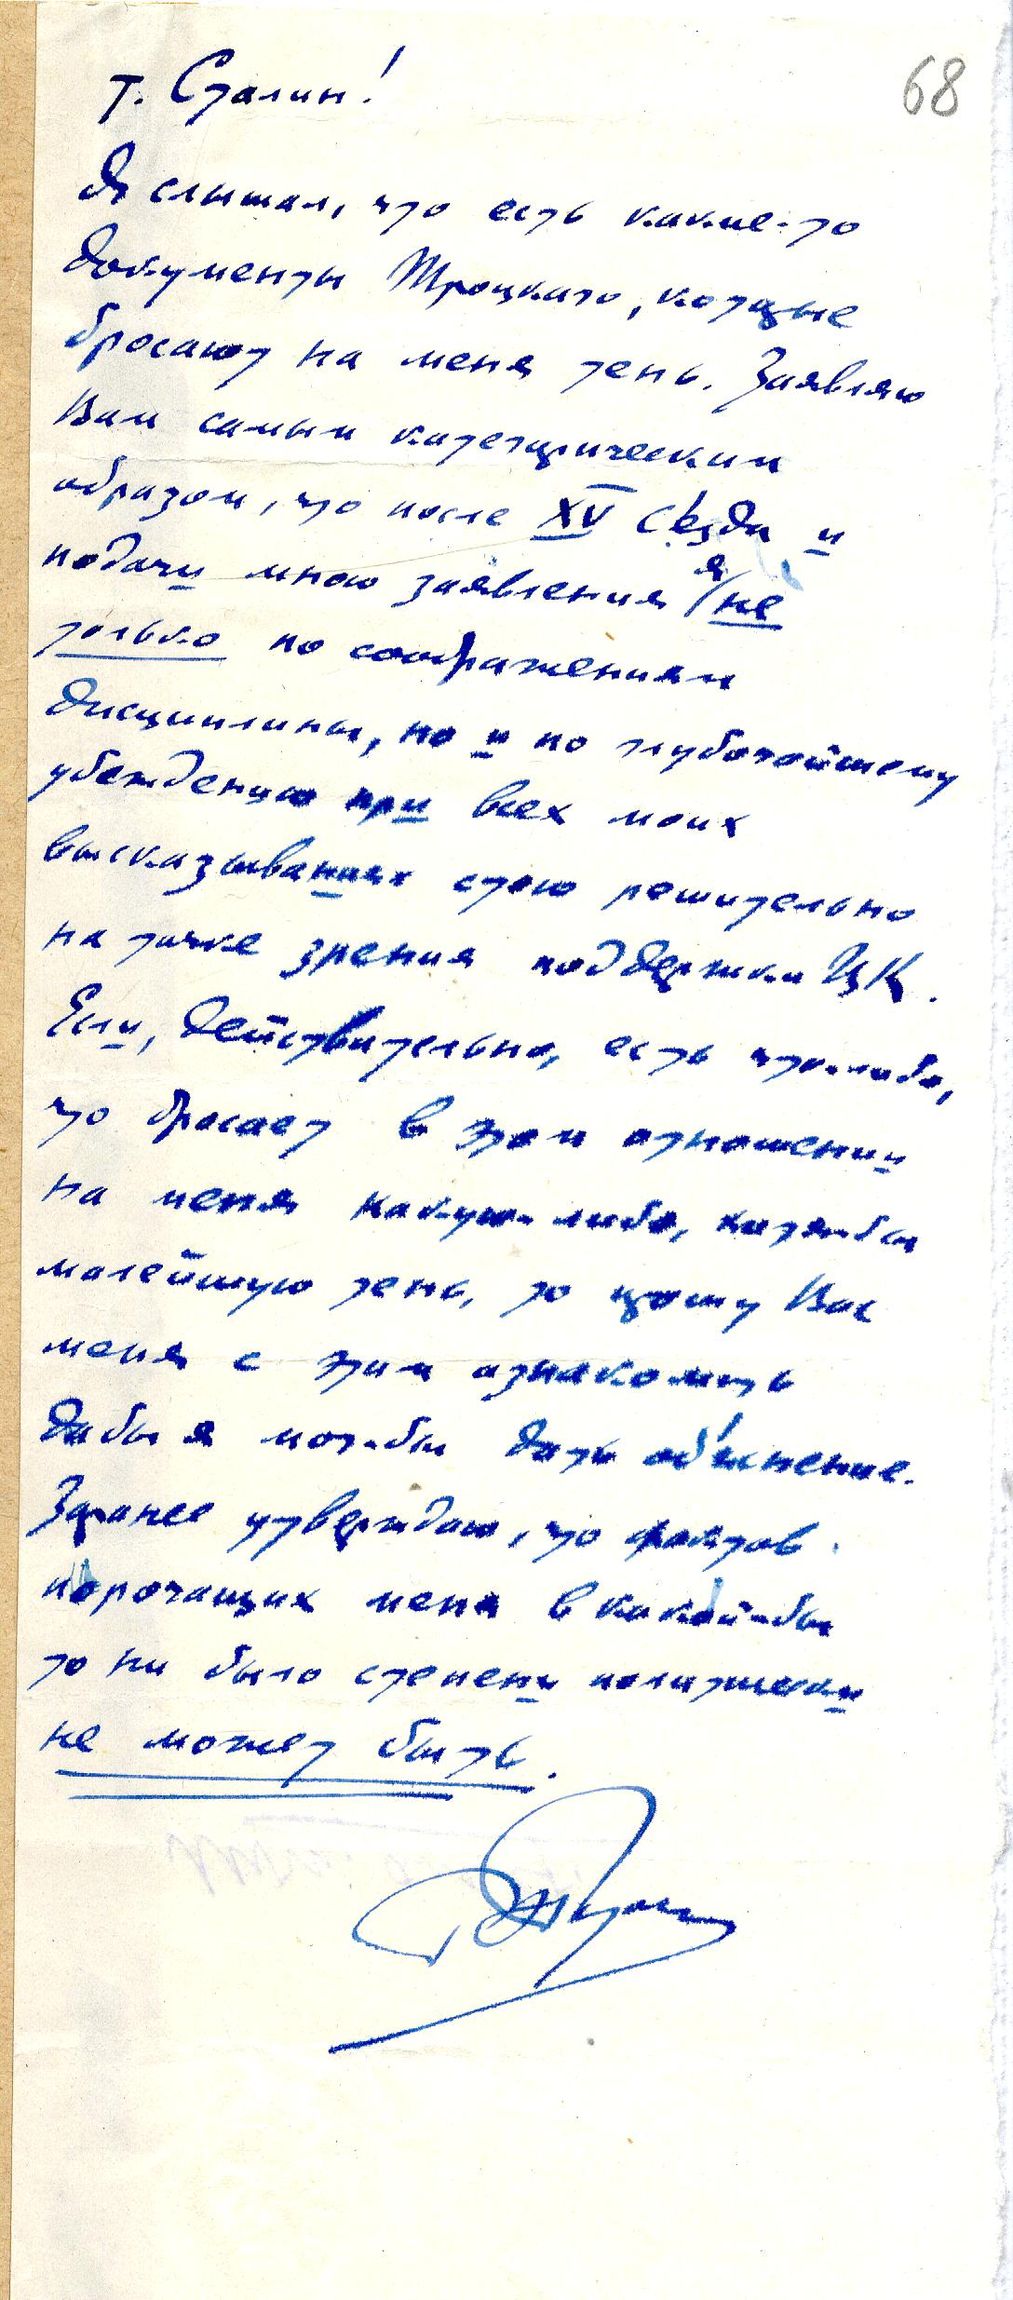 68
т. Сталин!
Я слышал, что есть какие-то
документы Троцкого, которые
бросают на меня тень. Заявляю
Вам самым категорическим
образом, что после XV Съезда и
подачи мною заявления я не
только по соображениям
дисциплины, но и по глубочайшему
убеждению при всех моих
высказываниях стою решительно
на точке зрения поддержки ЦК.
Если, действительно, есть что-либо,
что бросает в этом отношении
на меня какую-либо, хотя-бы
малейшую тень, то прошу Вас
меня с этим ознакомить
дабы я мог-бы дать об'яснение.
Заранее утверждаю, что фактов
порочащих меня в какой-бы
то ни было степени политически
не может быть.